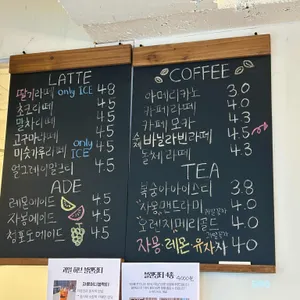 LATTE
딸기라떼 only ICE 4.8
초코라떼 4.5
말차라떼 4.5
고구마라떼 4.5
미숫가루라떼 only ICE 4.5
얼그레이밀크티 4.5
ADE
레몬에이드 4.5
자몽에이드 4.5
청포도에이드 4.5
COFFEE
아메리카노 3.0
카페라떼 4.0
카페모카 4.3
수제 바닐라빈라떼 4.5
돌체라떼 4.3
TEA
복숭아아이스티 3.8
4.0
오렌지메리골드 4.0
자몽 레몬 유자차 4.0